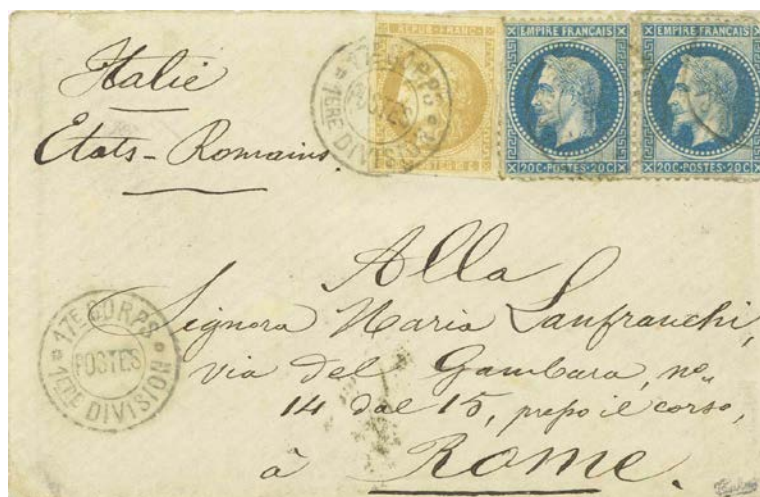 Italie
Etats-Romains.
REPUB. FRANC.
17E CORPS
POSTES
1ERE DIVISION
EMPIRE FRANÇAIS
20C·POSTES·20C
EMPIRE FRANÇAIS
20C·POSTES·20C
Alla
Signora Maria Lanfranchi,
via del Gambara, no
14 dal 15, presso il corso,
à ROME.
17E CORPS
POSTES
1ERE DIVISION